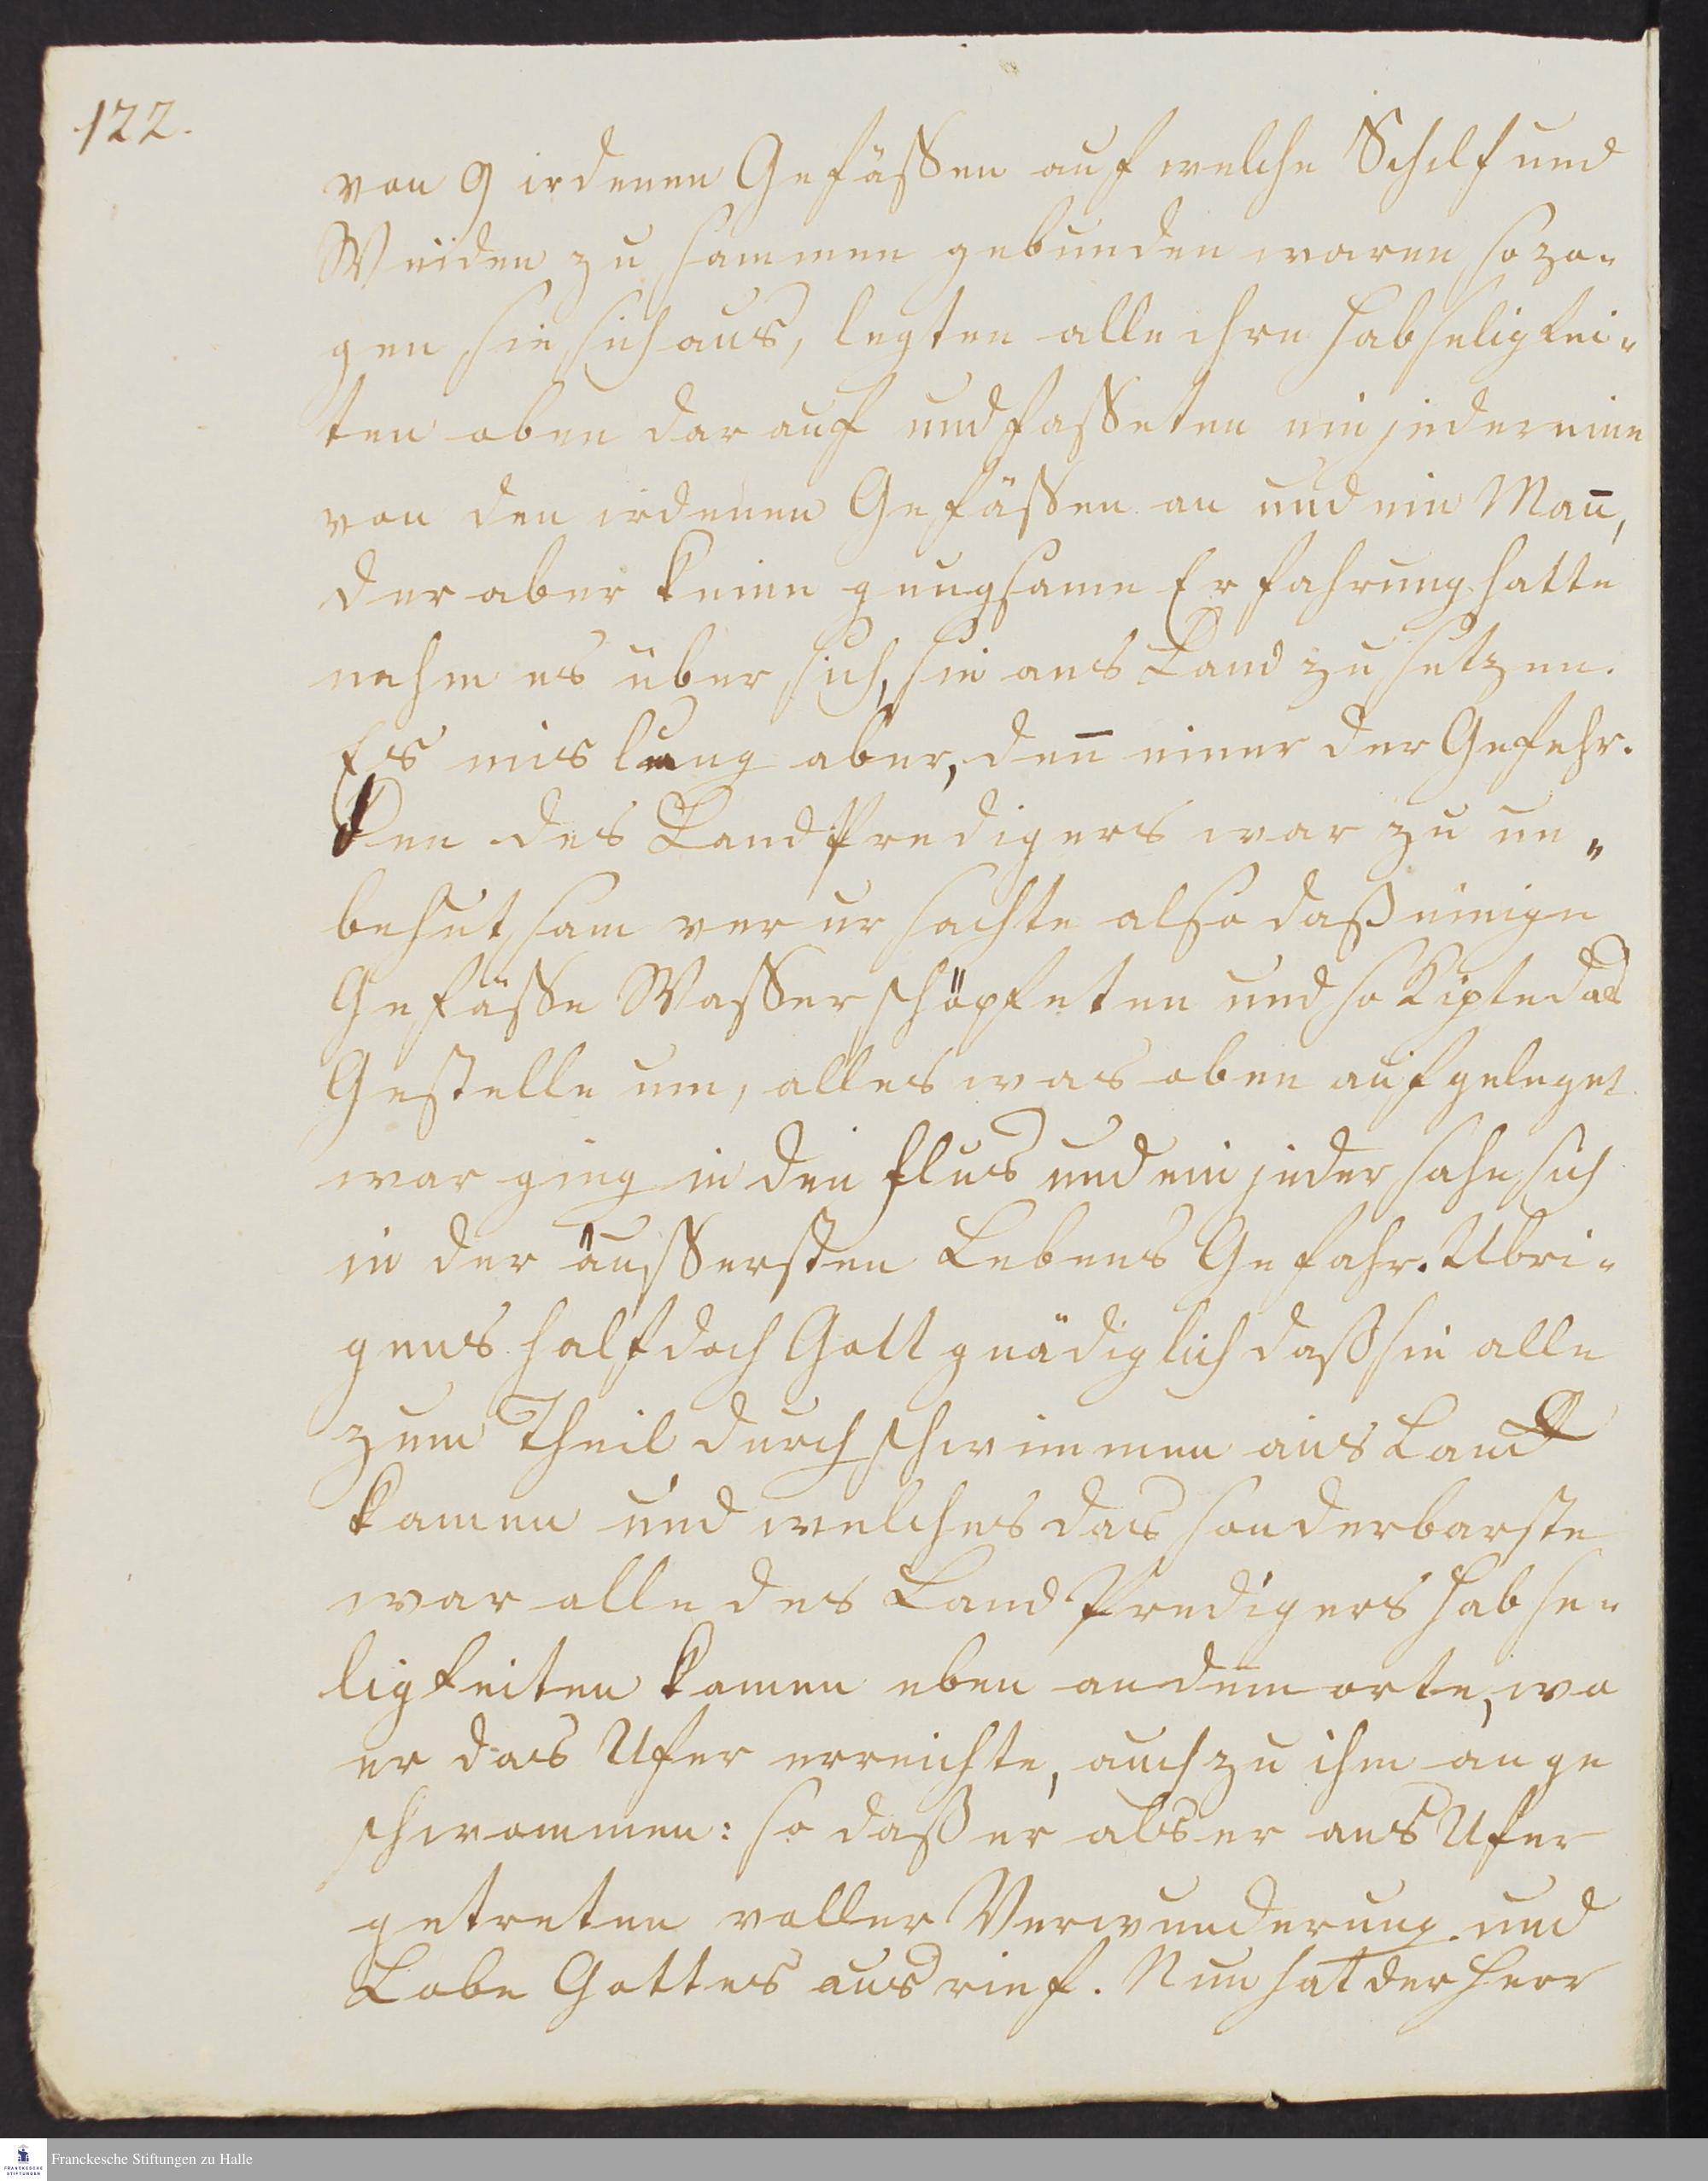 122.
von 9 irdenen Gefäßen auf welche Schilf und
Weiden zu sammen gebunden waren so zo-
gen sie sich aus, legten alle ihre Habseligkei-
ten oben darauf und fasseten ein jeder eine
von den irdenen Gefäßen an und ein Man̄,
der aber keine gnugsame Erfahrung hatte
nahm es über sich, sie ans Land zu setzen.
Es mislung aber, den̄ einer der Gefehr-
den des Land Predigers war zu un-
behutsam verursachte also daß einige
Gefäße Wasser schöpfeten und so kipte das
Gestelle um, alles was oben aufgeleget
war ging in den Flus und ein jeder sahe sich
in der äußersten Lebens Gefahr. Ubri-
gens half doch Gott gnädiglich daß sie alle
zum Theil durch schwimmen ans Land
kamen und welches das sonderbarste
war alle des Land Predigers Habse-
ligkeiten kamen eben an dem orte, wo
er das Ufer erreichte, auch zu ihm ange
schwommen: so daß er als er ans Ufer
getreten voller Verwunderung und
Lobe Gottes ausrief. Nun hat der Herr
FRANCKESCHE STIFTUNGEN
Franckesche Stiftungen zu Halle